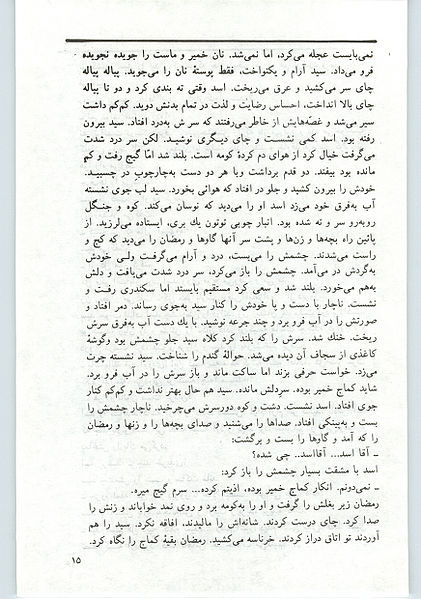 نمی‌بایست عجله می‌کرد، اما نمی‌شد. نان خمیر و ماست را جویده نجویده
فرو می‌داد. سید آرام و یکنواخت، فقط پوستهٔ نان را می‌جوید. پیاله پیاله
چای سر می‌کشید و عرق می‌ریخت. اسد وقتی ته بندی کرد و دو تا پیاله
چای بالا انداخت، احساس رضایت و لذت در تمام بدنش دوید. کم‌کم داشت
سیر می‌شد و غصه‌هایش از خاطر می‌رفتند که سرش به‌درد افتاد. سید بیرون
رفته بود. اسد کمی نشست و چای دیگری نوشید. لکن سر درد شدت
می‌گرفت خیال کرد از هوای دم کردهٔ کومه است. بلند شد امّا گیج رفت و کم
مانده بود بیفتد. دو قدم برداشت وبا هر دو دست به‌چارچوب در چسبید.
خودش را بیرون کشید و جلو در افتاد که هوائی بخورد. سید لب جوی نشسته
آب به‌فرق خود می‌زد اسد او را می‌دید که نوسان می‌کند. کوه و جنگل
روبه‌رو سر و ته شده بود. انبار چوبی توتون یك بری، ایستاده می‌لرزید. از
پائین راه بچه‌ها و زن‌ها و پشت سر آنها گاوها و رمضان را می‌دید که کج و
راست می‌شدند. چشمش را می‌بست، درد و آرام می‌گرفت ولی خودش
به‌گردش در می‌آمد. چشمش را باز می‌کرد، سر درد شدت می‌یافت و دلش
به‌هم می‌خورد. بلند شد و سعی کرد مستقیم بایستد اما سکندری رفت و
نشست. ناچار با دست و پا خودش را کنار سید به‌جوی رساند. دمر افتاد و
صورتش را در آب فرو برد و چند جرعه نوشید. با یك دست آب به‌فرق سرش
ریخت. خنك شد. سرش را که بلند کرد کلاه سید جلو چشمش بود وگوشهٔ
کاغذی از سجاف آن دیده می‌شد. حوالهٔ گندم را شناخت. سید نشسته چرت
می‌زد. خواست حرفی بزند اما ساکت ماند و باز سرش را در آب فرو برد.
شاید کماج خمیر بوده، سردلش مانده. سید هم حال بهتر نداشت و کم‌کم کنار
جوی افتاد. اسد نشست. دشت و کوه دورسرش می‌چرخید. ناچار چشمش را
بست و به‌بینکی افتاد. صداها را می‌شنید و صدای بچه‌ها را و زنها و رمضان
را که آمد و گاوها را بست و برگشت:
ـ آقا اسد... آقااسد.. چی شده؟
اسد با مشقت بسیار چشمش را باز کرد:
ـ نمی‌دونم. انکار کماج خمیر بوده، اذیتم کرده... سرم گیج میره.
رمضان زیر بغلش را گرفت و او را به‌کومه برد و روی نمد خواباند و زنش را
صدا کرد. چای درست کردند. شانه‌اش را مالیدند، افاقه نکرد. سید را هم
آوردند تو اتاق دراز کردند. خرناسه می‌کشید. رمضان بقیهٔ کماج را نگاه کرد.
۱۵